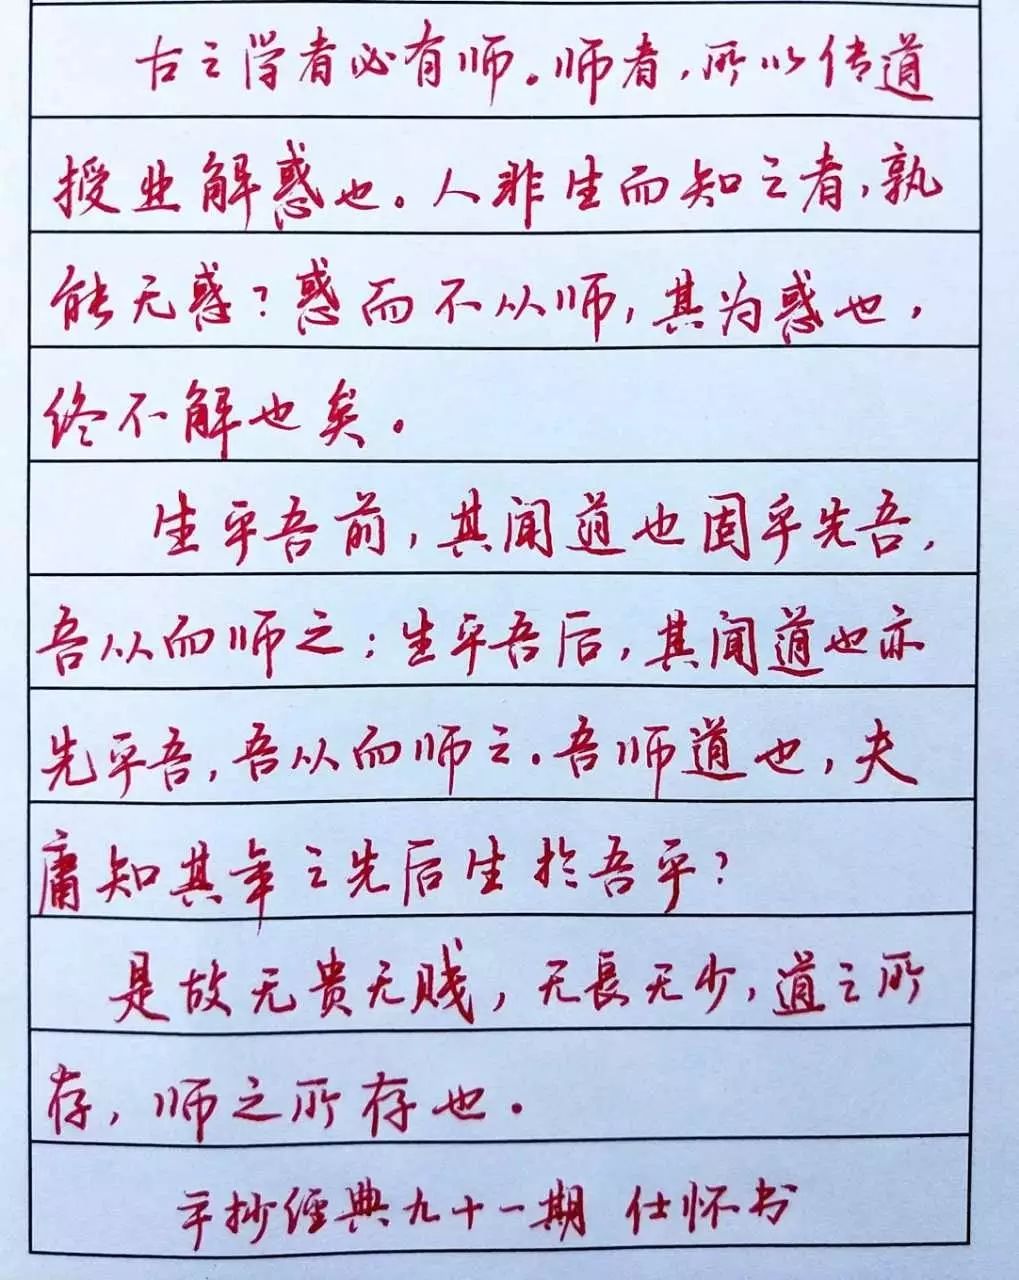 古之学者必有师。师者，所以传道
授业解惑也。人非生而知之者，孰
能无惑？惑而不从师，其为惑也，
终不解也矣。
生乎吾前，其闻道也固乎先吾，
吾从而师之；生乎吾后，其闻道也亦
先乎吾，吾从而师之。吾师道也，夫
庸知其年之先后生於吾乎？
是故无贵无贱，无長无少，道之所
存，师之所存也。
手抄经典九十一期 仕怀书